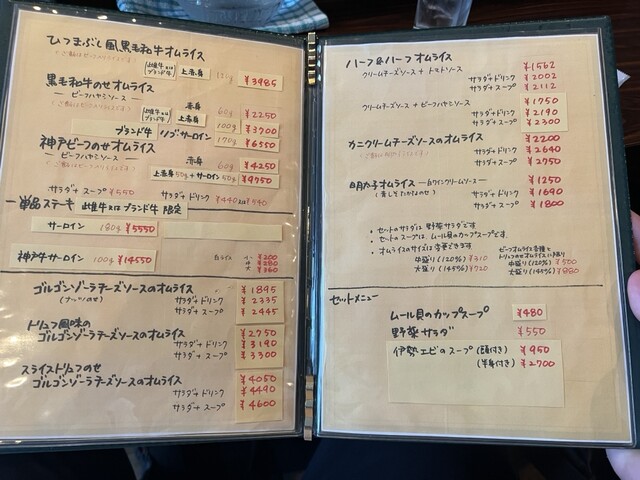 ひつまぶし風黒毛和牛オムライス
雌牛又はブランド牛 上赤身 ¥3985
黒毛和牛のせオムライス
ービーフハヤシソースー
雌牛又はブランド牛 赤身 60g ¥2250
上赤身 100g ¥3700
ブランド牛 リブサーロイン 170g ¥6550
神戸ビーフのせオムライス
ービーフハヤシソースー
赤身 60g ¥4250
上赤身50g+サーロイン50g ¥9750
サラダ+スープ ¥550 サラダ+ドリンク ¥440
単品ステーキ 雌牛又はブランド牛 限定
サーロイン 180g ¥5550
神戸牛サーロイン 100g ¥14550
白ライス 小 ¥200
中 ¥280
大 ¥360
ゴルゴンゾーラチーズソースのオムライス ¥1895
サラダ+ドリンク ¥2335
サラダ+スープ ¥2445
トリュフ風味の
ゴルゴンゾーラチーズソースのオムライス ¥2750
サラダ+ドリンク ¥3190
サラダ+スープ ¥3300
スライストリュフのせ
ゴルゴンゾーラチーズソースのオムライス ¥4050
サラダ+ドリンク ¥4490
サラダ+スープ ¥4600
ハーフ&ハーフ オムライス
クリームチーズソース+トマトソース ¥1562
サラダ+ドリンク ¥2002
サラダ+スープ ¥2112
クリームチーズソース+ビーフハヤシソース ¥1750
サラダ+ドリンク ¥2190
サラダ+スープ ¥2300
カニクリームチーズソースのオムライス ¥2200
サラダ+ドリンク ¥2640
サラダ+スープ ¥2750
明太子オムライス ー白ワインクリームソースー ¥1250
サラダ+ドリンク ¥1690
サラダ+スープ ¥1800
・セットのサラダは野菜サラダです
・セットのスープは、ムール貝のカップスープです。
・オムライスのサイズは変更できます
中盛り(120%) ¥310
大盛り(145%) ¥720
ビーフオムライス各種と
トリュフのせオムライスに限り
中盛り(120%) ¥500
大盛り(145%) ¥880
セットメニュー
ムール貝のカップスープ ¥480
野菜サラダ ¥550
伊勢エビのスープ (頭付き) ¥950
(半身付き) ¥2700